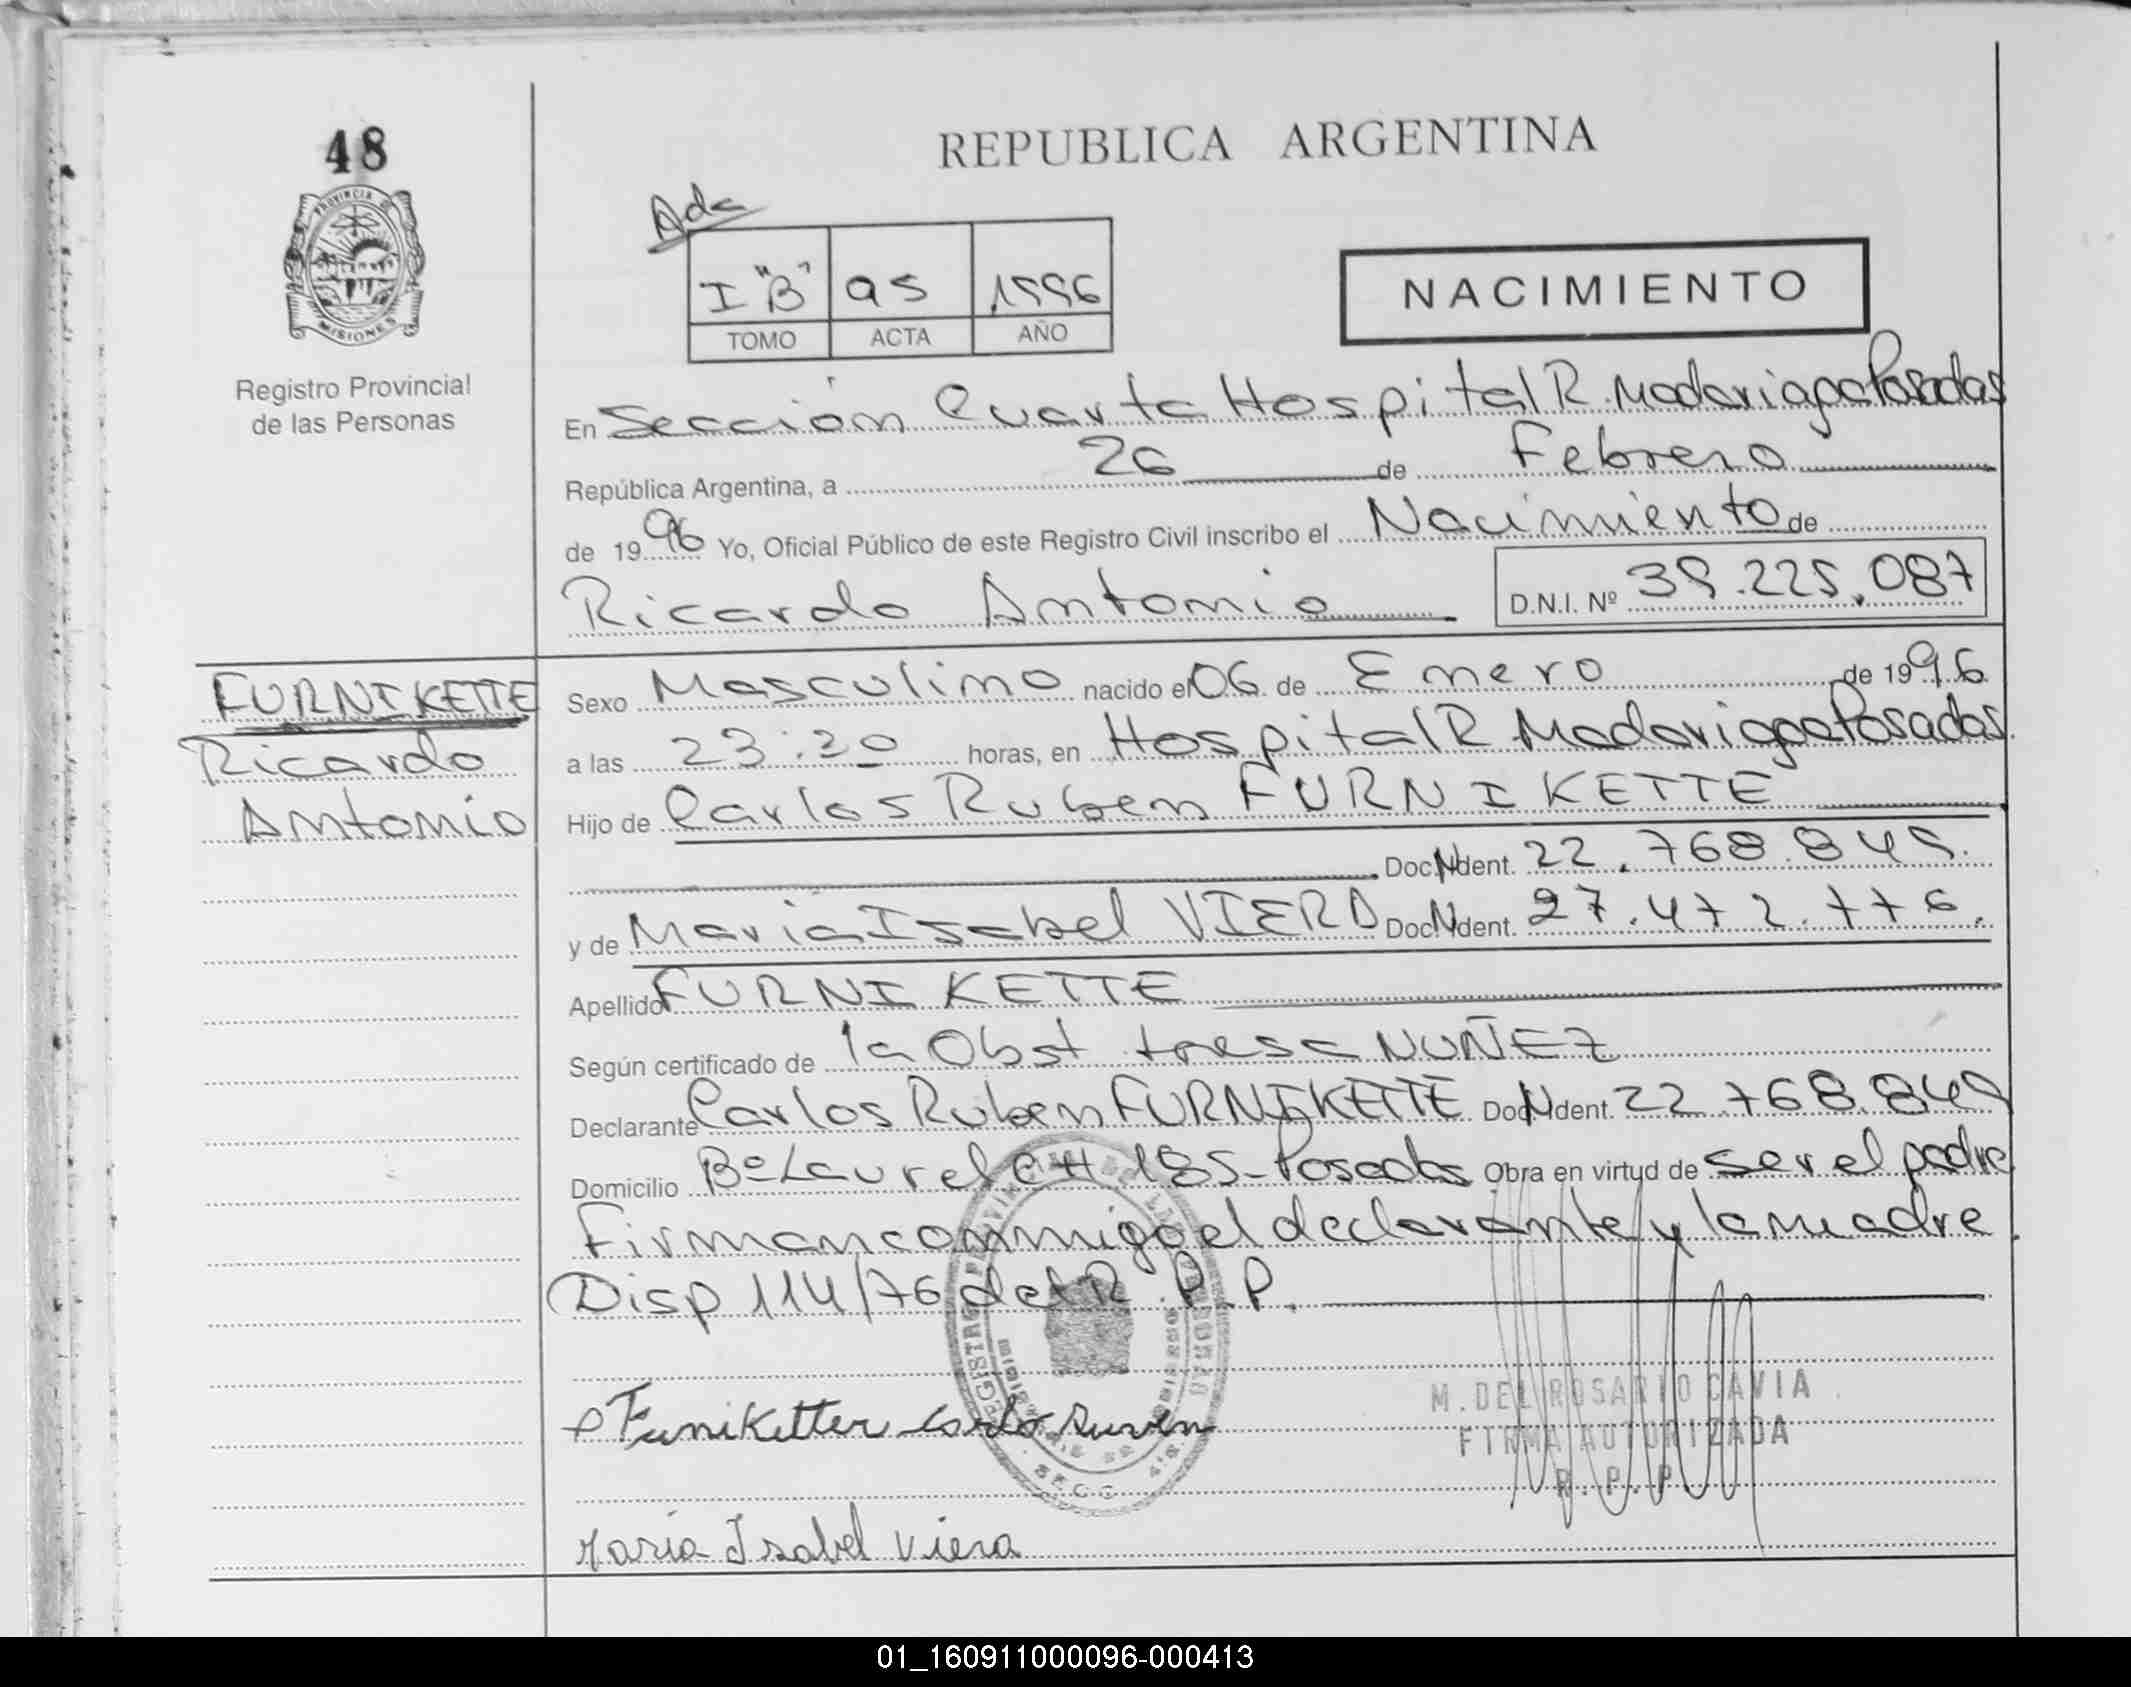 48
PROVINCIA DE
MISIONES
Registro Provincial
de las Personas
REPUBLICA ARGENTINA
Ada
I "B" 95 1996
TOMO ACTA AÑO
NACIMIENTO
En Sección Cuarta Hospital R. Madariaga Posadas
República Argentina, a 26 de Febrero
de 1996 Yo, Oficial Público de este Registro Civil inscribo el Nacimiento de
Ricardo Antonio D.N.I. Nº 39.225.087
FURNIKETTE
Ricardo
Antonio
Sexo Masculino nacido el 06 de Enero de 1996
a las 23:20 horas, en Hospital R Madariaga Posadas
Hijo de Carlos Ruben FURNIKETTE
Doc. Ident. 22.768.849.
y de Maria Isabel VIERA Doc. Ident. 27.472.776.
Apellido FURNIKETTE
Según certificado de la Obst NUÑEZ
Declarante Carlos Ruben FURNIKETTE Doc. Ident. 22.768.849
Domicilio Bº Laurel CH 185-Posadas Obra en virtud de ser el padre
Firman conmigo el declarante y la madre
Disp 114/76 del R.P.P.
M. DEL ROSARIO CAVIA
FIRMA AUTORIZADA
R.P.P.
Furniketter Carlos Ruven
Maria Isabel Viera
01_160911000096-000413